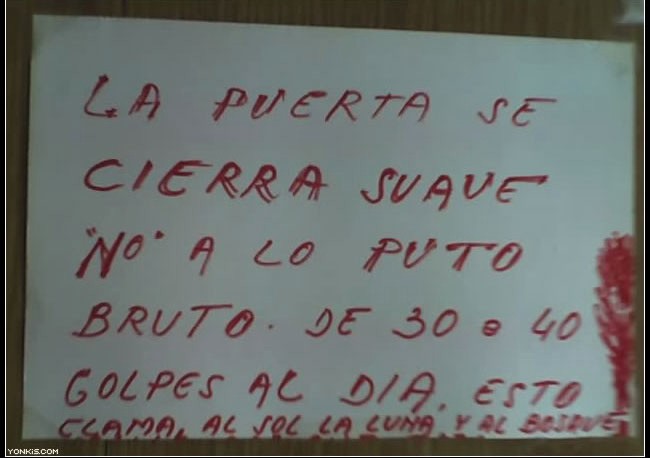 LA PUERTA SE
CIERRA SUAVE
"NO" A LO PUTO
BRUTO. DE 30 o 40
GOLPES AL DIA, ESTO
CLAMA, AL SOL LA LUNA, Y AL BOSQUE
YONKIS.COM